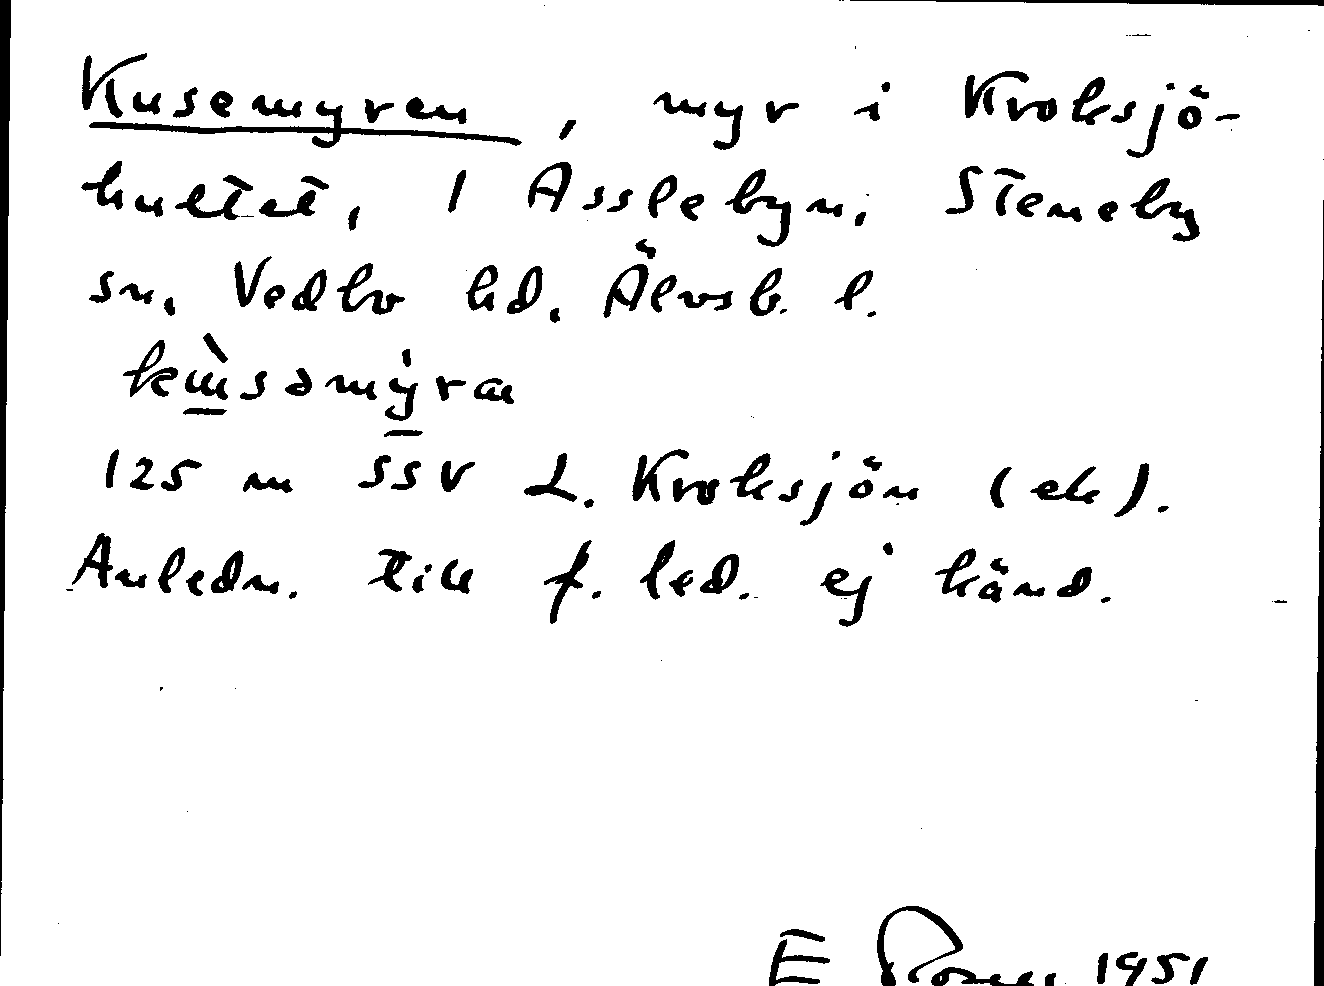 Kusemyren, myr i Kroksjö-
hultet, 1 Åsslebyn, Steneby
sn, Vedbo hd. Älvsb. l.
125 m SSV L. Kroksjön (ek).
Anledn. till f. led. ej känd.
E 1951